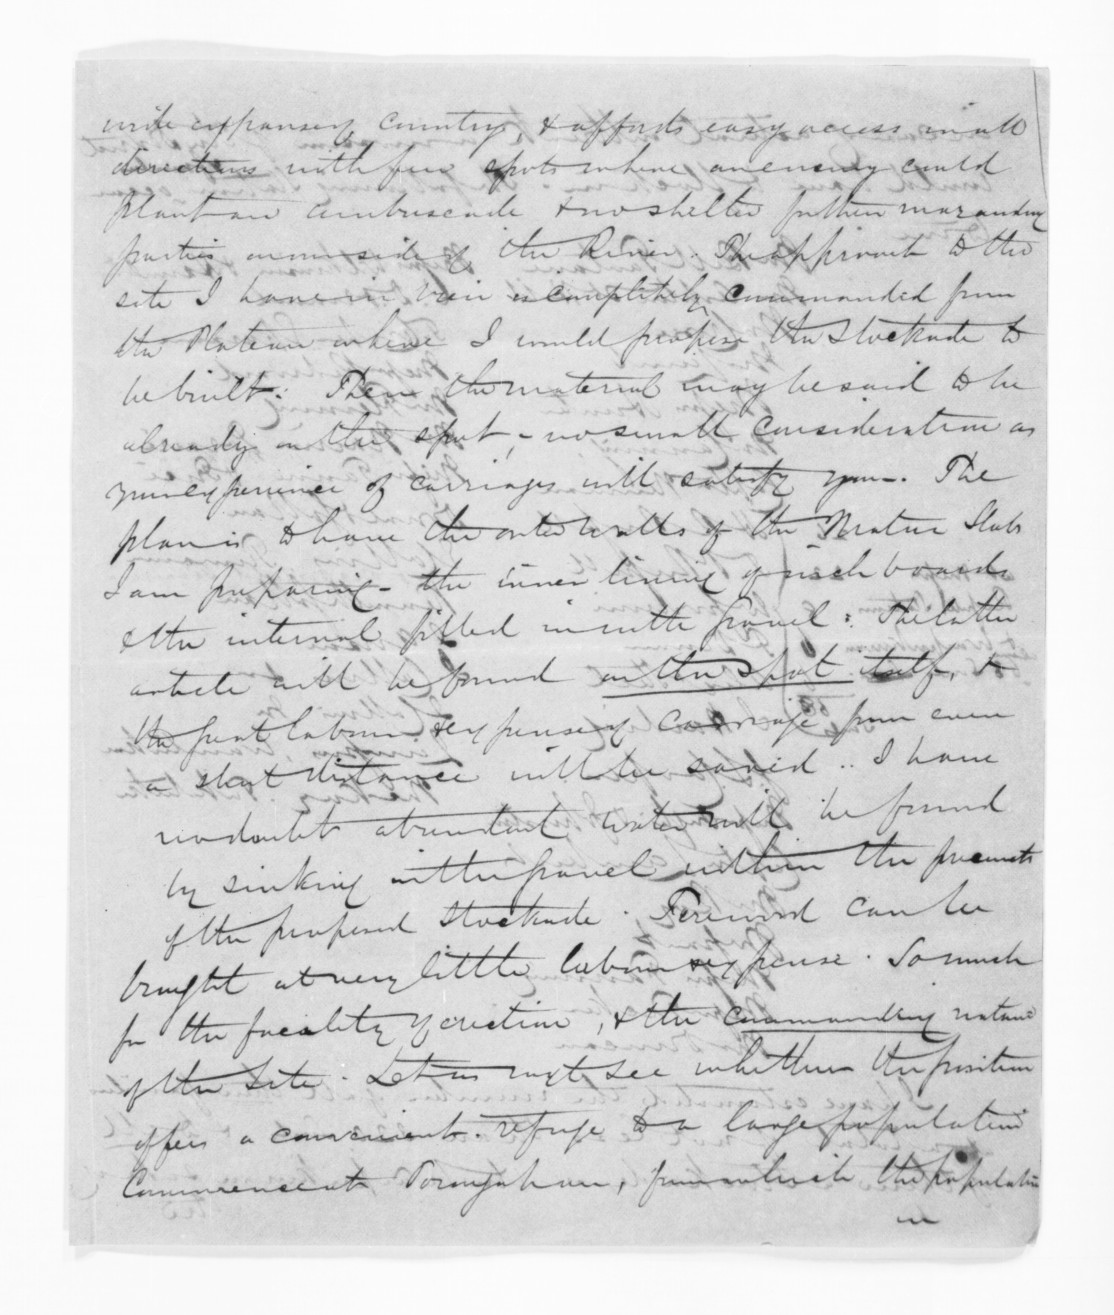 wide expanse of country, & affords easy access in all
directions with few spots where an enemy could
plant an ambuscade & no shelter for them marauding
parties on one side of the River. The approach to the
site I have in view is completely commanded from
the Plateau where I would propose the Stockade to
be built: Then the material may be said to be
already on the spot, - no small consideration as
your experience of carriages will satisfy you. The
plan is to have the outer walls of the Matai Slabs
I am preparing - the inner lining of inch boards
& the internal filled in with Gravel: The latter
article will be found on the spot itself, &
the great labour & expense of carriage from even
a short distance will be saved.. I have
no doubt abundant water will be found
by sinking in the gravel within the precincts
of the proposed Stockade. Firewood can be
brought at very little labour & expense. So much
for the facility of erection, & the commanding nature
of the Site. Let us next see whether the position
offers a convenient refuge to a large population.
Commence at Porangahau, from which the population
in